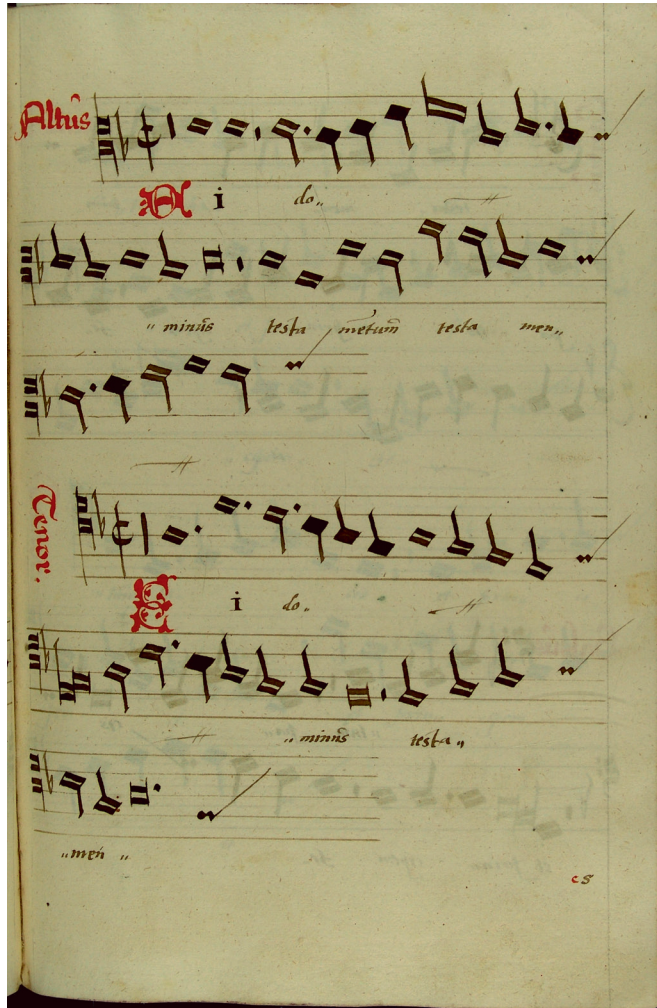 Altus
Di do„
„ minus testa metum testa men„
Tenor:
Di do„
„ minus testa„
„men „
c8